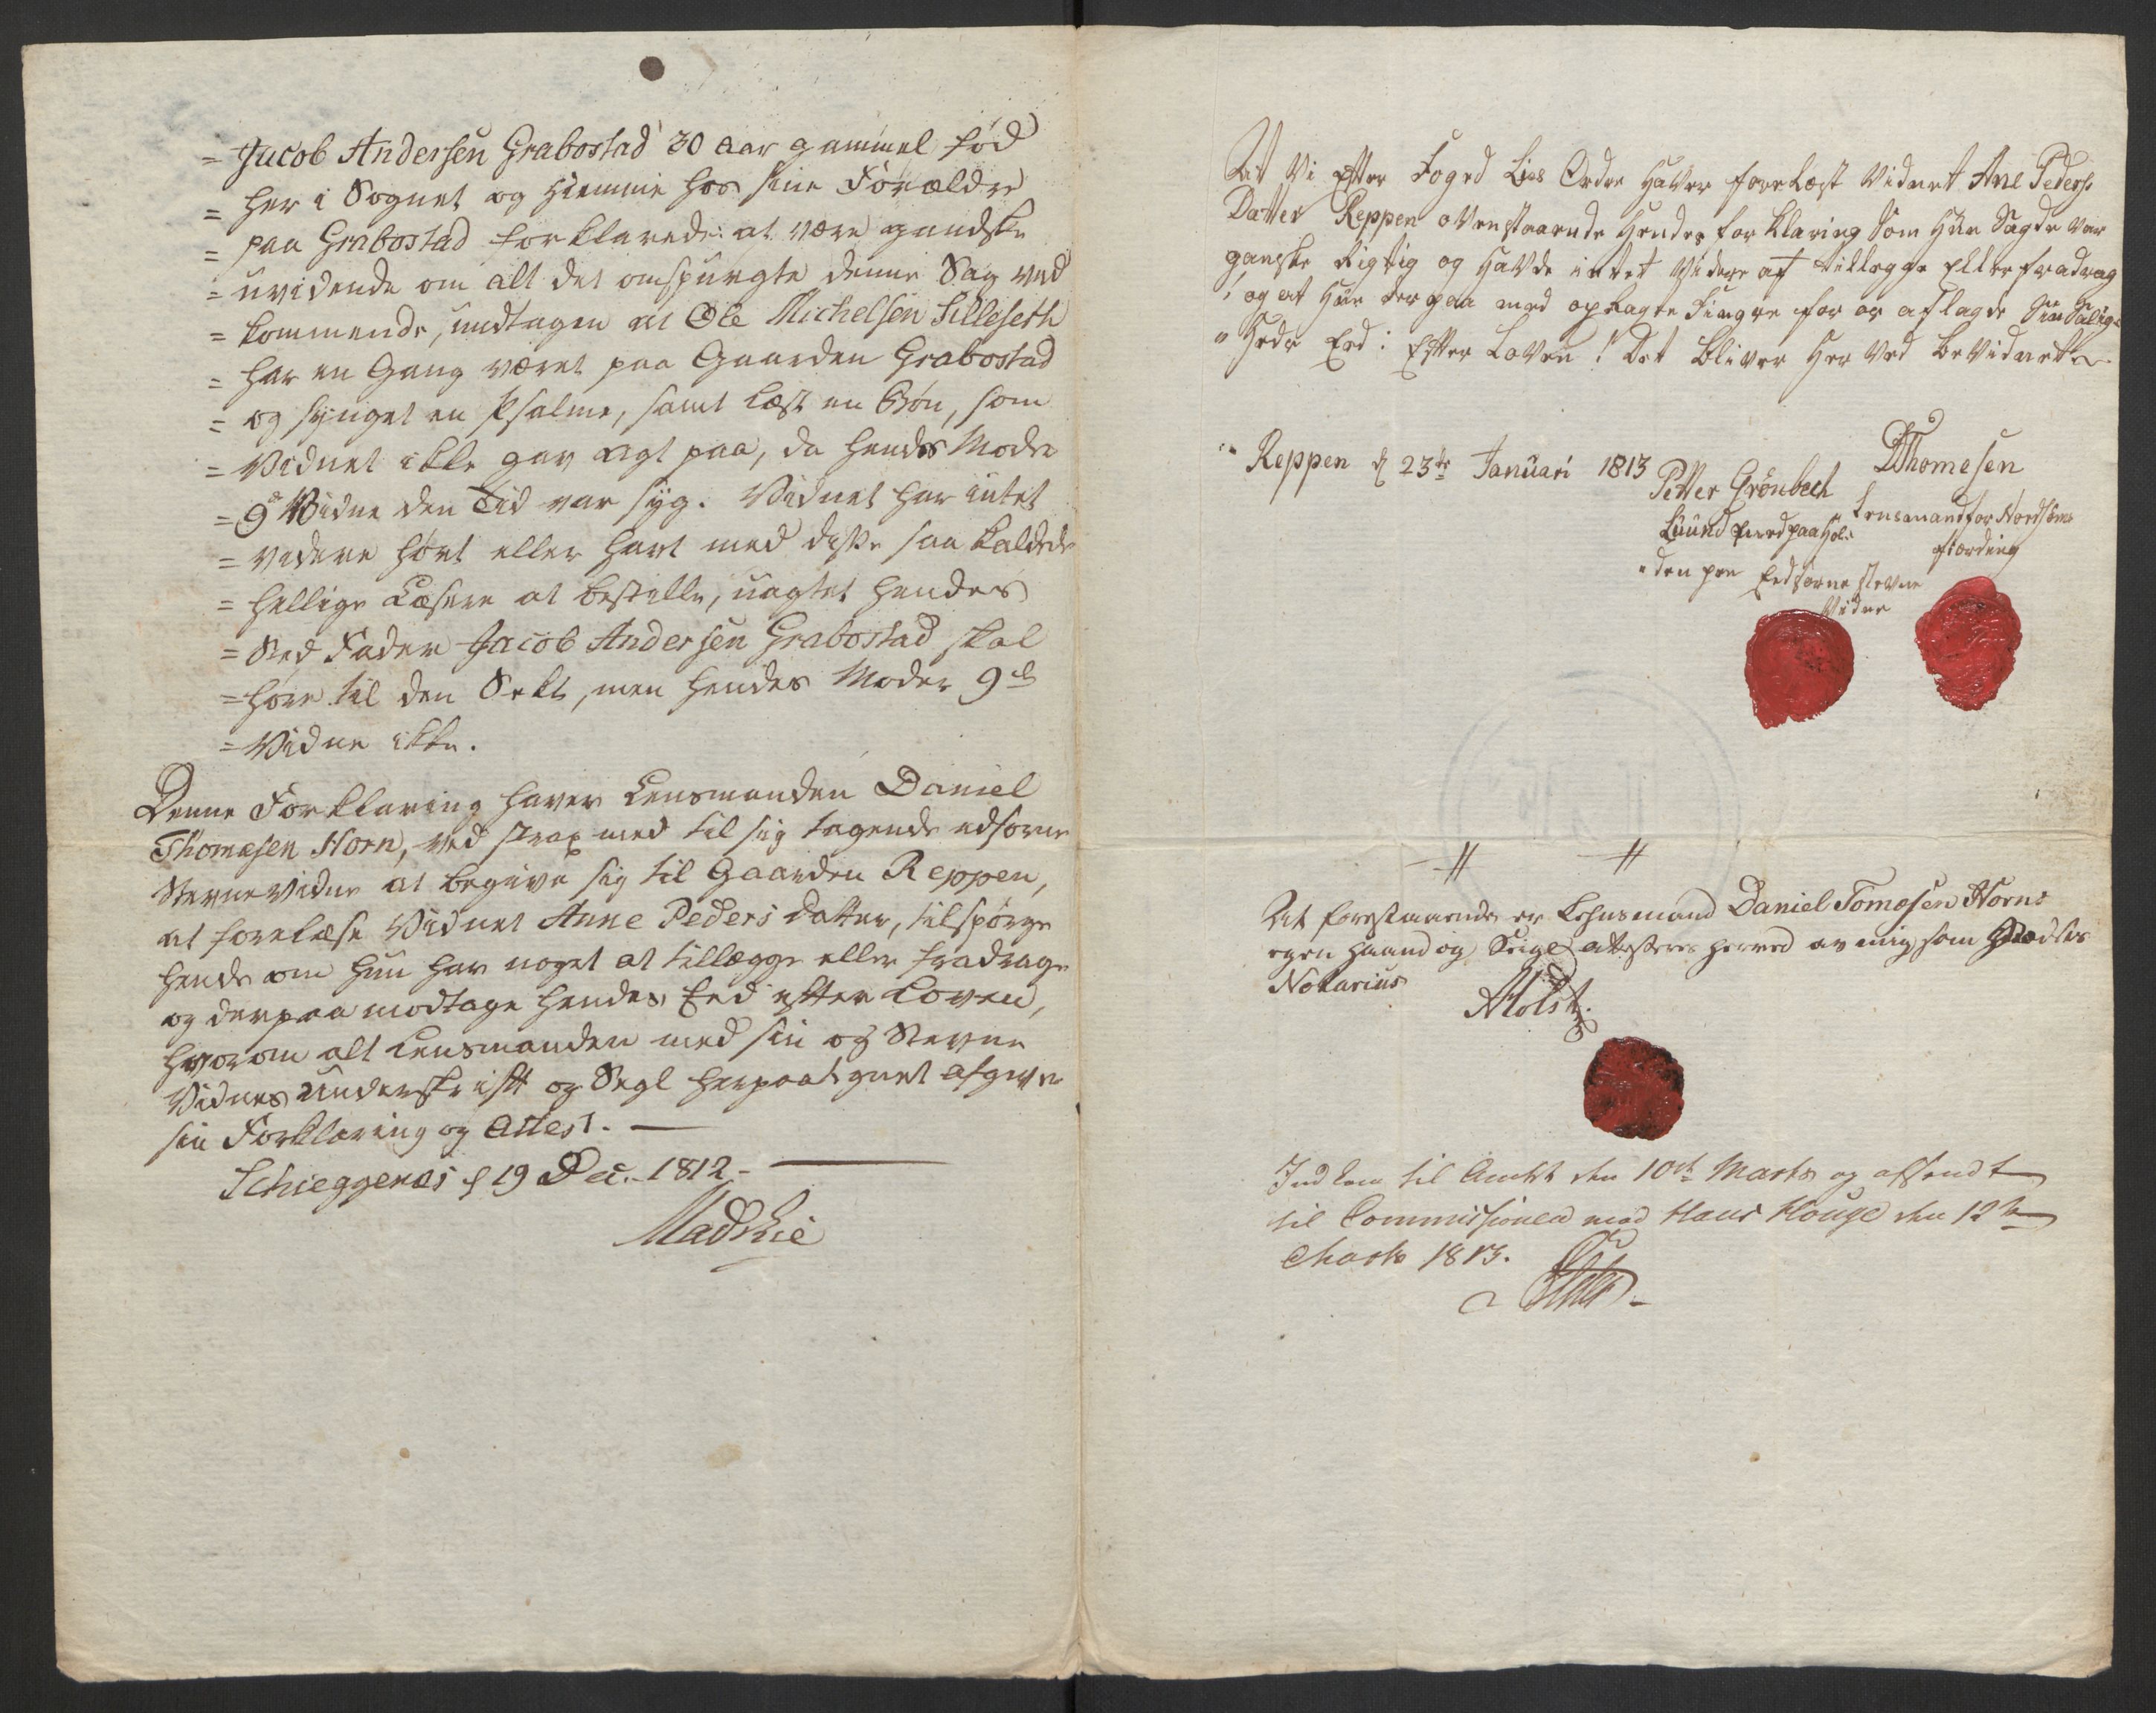 = Jacob Andersen Grabostad 30 aar gammel fød
= her i Sognet og hiemme hos sine Forældre
= paa Grabostad forklarede: at være gandske
= uvidende om alt det omspurgte denne Sag ved
= kommende, undtagen at Ole Michelsen Silleseth
= har en Gang været paa Gaarden Grabostad
= og synget en Psalme, samt læst en Bøn, som
= Vidnet ikke gav agt paa, da hendes Moder
= 9de Vidne den Tid var syg. Vidnet har intet
= videre hørt eller havt med disse saa kaldede
= hellige Læsere at bestille, uagtet hendes
= Sted Fader Jacob Andersen Grabostad skal
= høre til den Sekt, men hendes Moder 9de
= Vidne ikke.
Denne Forklaring haver Lensmanden Daniel
Thomesen Horn, ved strax med til sig tagende edsorne
Stevnevidne at begive sig til Gaarden Reppen,
at forelæse Vidnet Anne Peders datter, tilspørge
hende om hun har noget at tillægge eller fradrage
og derpaa modtage hendes Eed efter Loven,
hvorom alt Lensmanden med sin og Stevne
Vidnes Underskrift og Segl herpaategnet afgiver
sin Forklaring og Attest. —
Schieggenæs d 19 Dec. 1812 —
Madskie
At Vi Efter Foged Lies Ordre Haver forelæst Vidnet Ane Peders
Datter Reppen ovenstaaende Hendes forklaring Som Hun Sagde var
ganske Rigtig og Havde intet Videre at tillegge Eller fradrag
og at Hun derpaa med opragte Fingre for os aflagde Sin Salig
" Heds Eed: Efter Loven! Det bliver Her Ved bevidnet
Reppen d 23de Januari 1813
Petter Grönbech
Luund paa Hol
den som Eedsorne stevne
Vidne
DThomesen
Lensmand for Nordsøms
fiording
At forestaaende er Lehnsmand Daniel Tomesen Horns
egen Haand og Seigl attesteres herved av mig som Stædets
Notarius
Holst.
Indkom til Amtet den 10de Marts og afsendt
til Commissionen mod Hans Houge den 12te
Marts 1813.